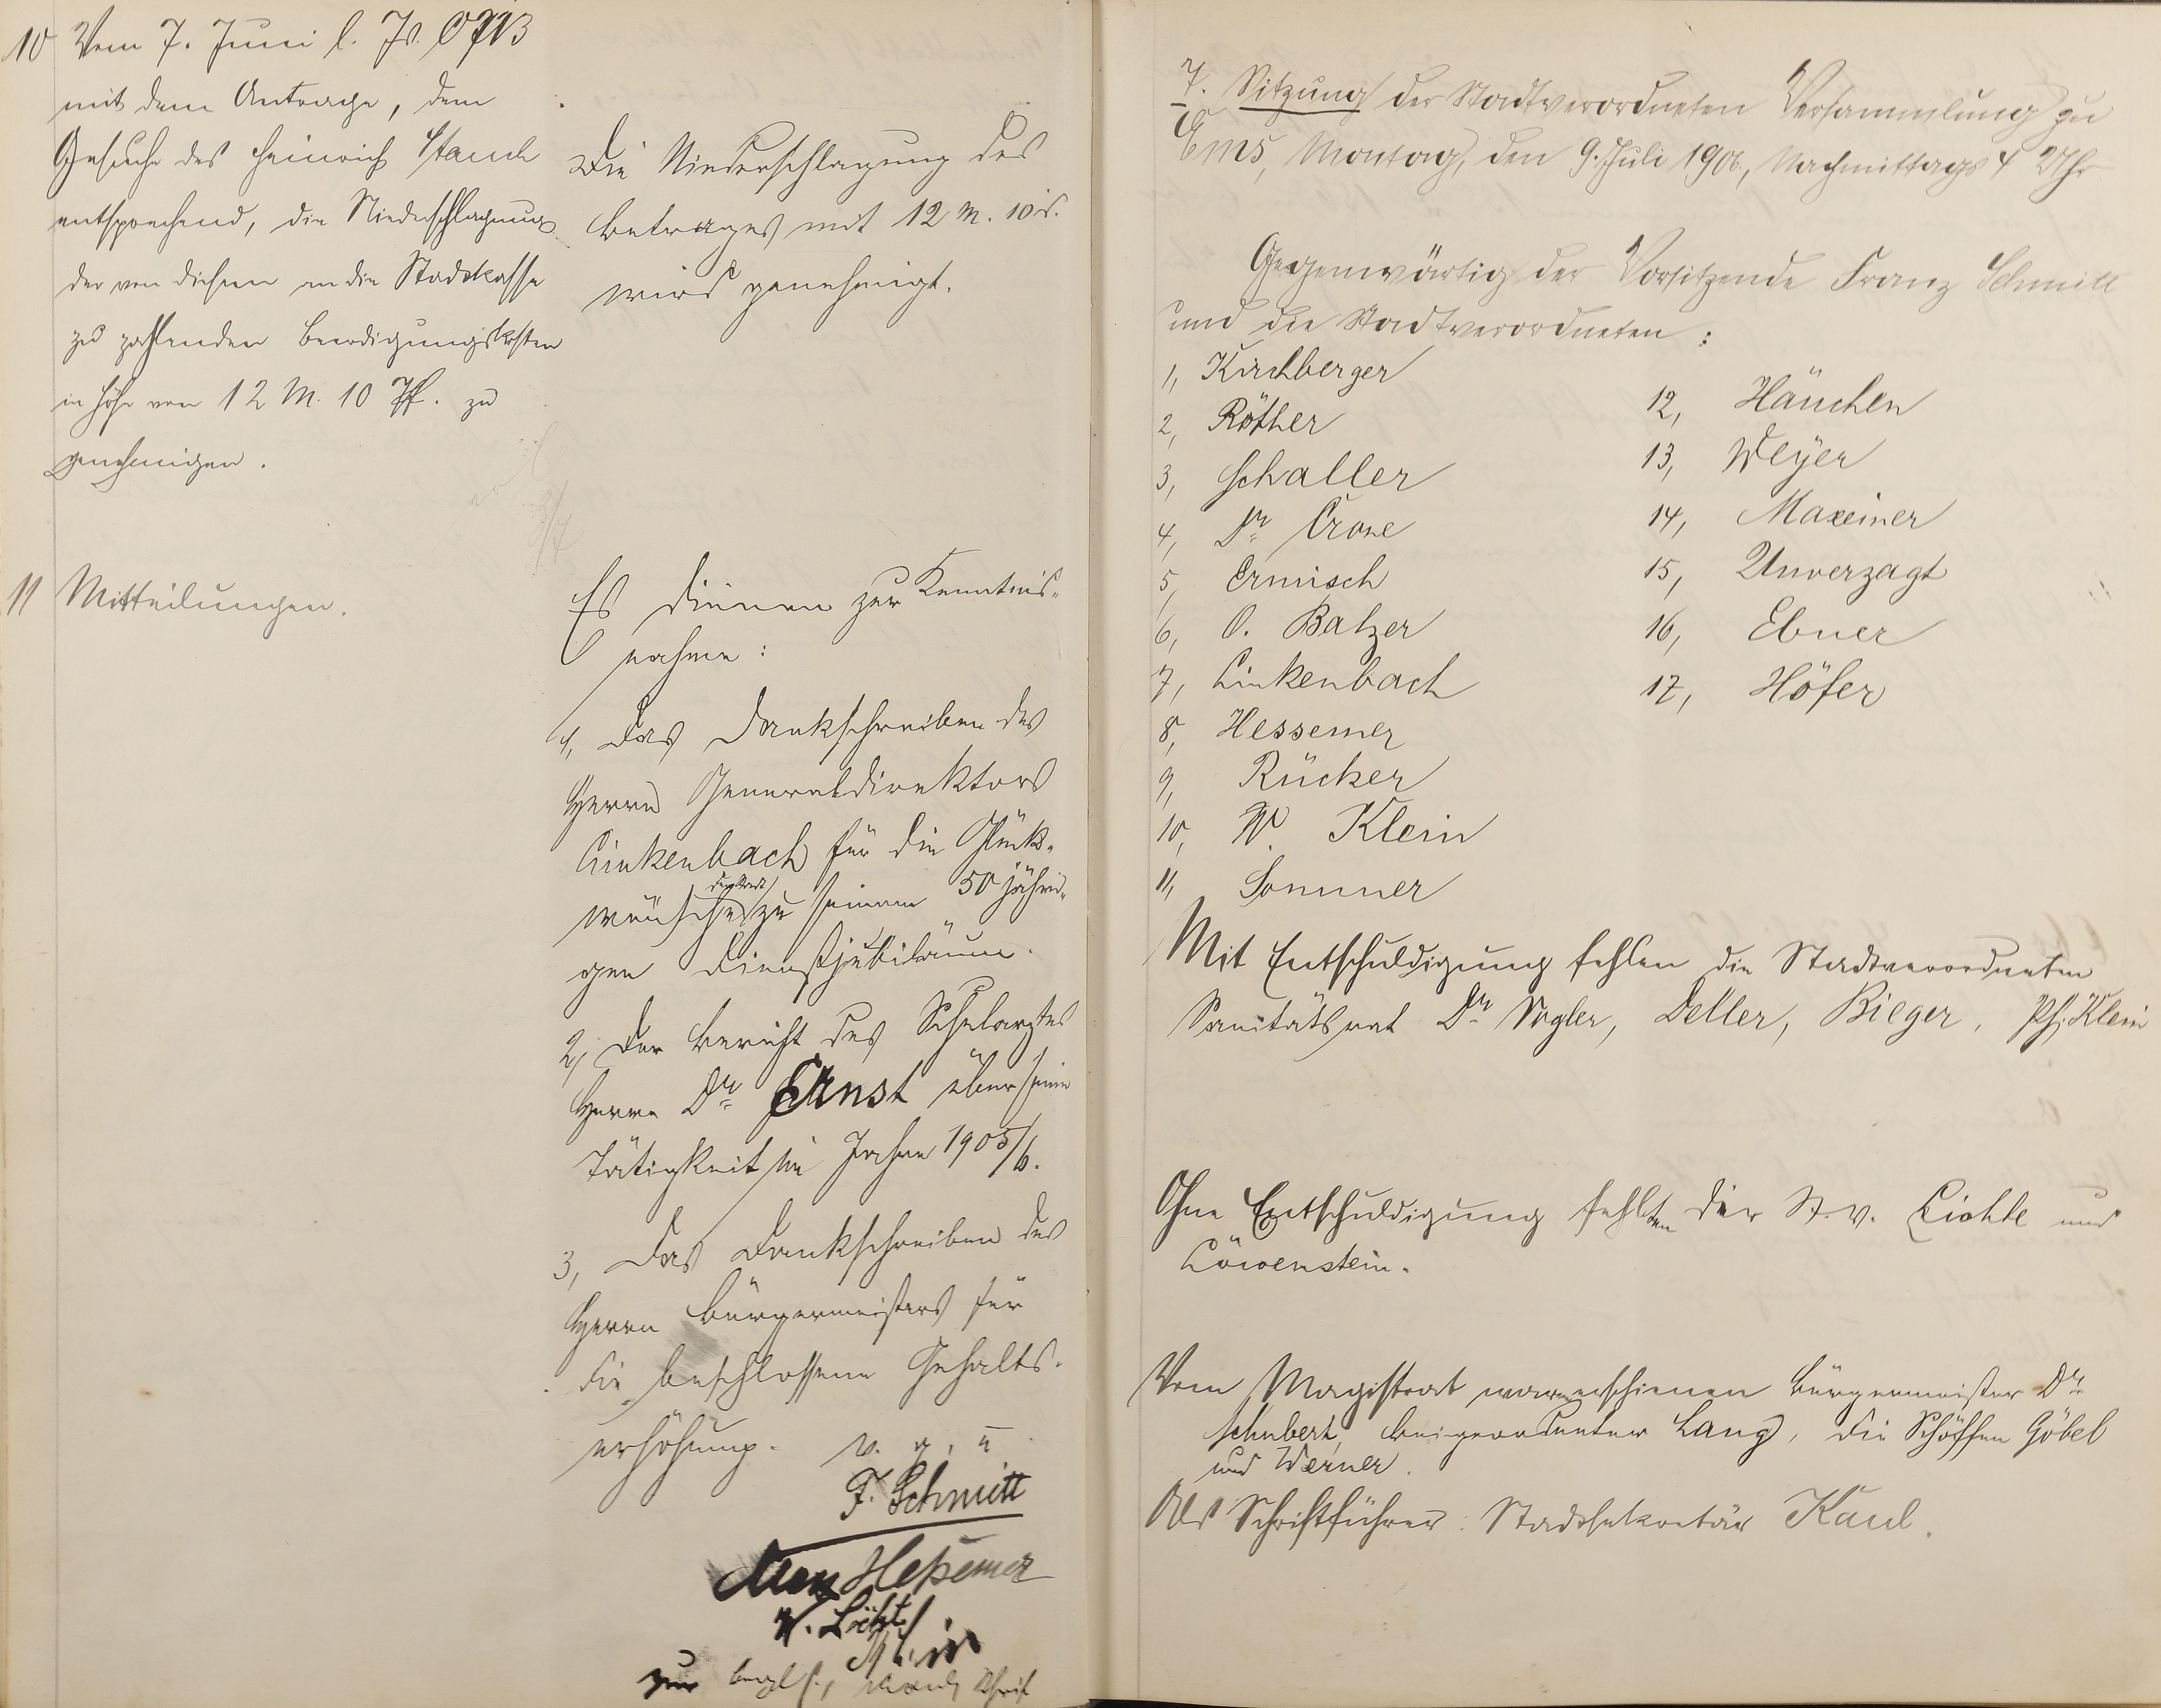 10 Vom 7. Juni l. Js.
mit dem Antrage, dem
Gesuche des Heinrich
entsprechend, die Niederschlagung
der von diesem an die Stadtkasse
zu zahlenden Beerdigungskosten
in Höhe von 12 M. 10 Pf. zu
genehmigen.
Die Niederschlagung des
Betrages mit 12 M. 10
wird genehmigt.
11 Mitteilungen.
Es dienen zur Kenntnis-
nahme:
1, Das Dankschreiben des
Herrn Generaldirektors
Linkenbach für die Glück-
wünsche der Stadt zu seinem 50 jähri-
gen Dienstjubiläum.
2, Der Bericht des Schularztes
Herrn Dr Ernst über seine
Tätigkeit im Jahre 1905/6.
3, Das Dankschreiben des
Herrn Bürgermeisters für
die beschlossene Gehalts-
erhöhung. v. g. u
F. Schmitt
Heßemer
7. Sitzung der Stadtverordneten Versammlung zu
Ems, Montag, den 9. Juli 1906, Nachmittags 4 Uhr
Gegenwärtig der Vorsitzende Franz Schmitt
und die Stadtverordneten:
1, Kirchberger
2, Röther
3, Schaller
4, Dr Crone
5, Ermisch
6, O. Balzer
7, Linkenbach
8, Hessemer
9, Rücker
10, W. Klein
11, Sommer
12, Häuchen
13, Weyer
14, Maxeiner
15, Unverzagt
16, Ebner
17, Höfer
Mit Entschuldigung fehlen die Stadtverordneten
Sanitätsrat Dr Vogler, Deller, Bieger, Ph. Klein
Ohne Entschuldigung fehlten die St. v. Lichte und
Löwenstein.
Vom Magistrat waren erschienen Bürgermeister Dr
Schubert, Beigeordneter Lang, die Schöffen Göbel
und Werner.
Als Schriftführer: Stadtsekretär Kaul.